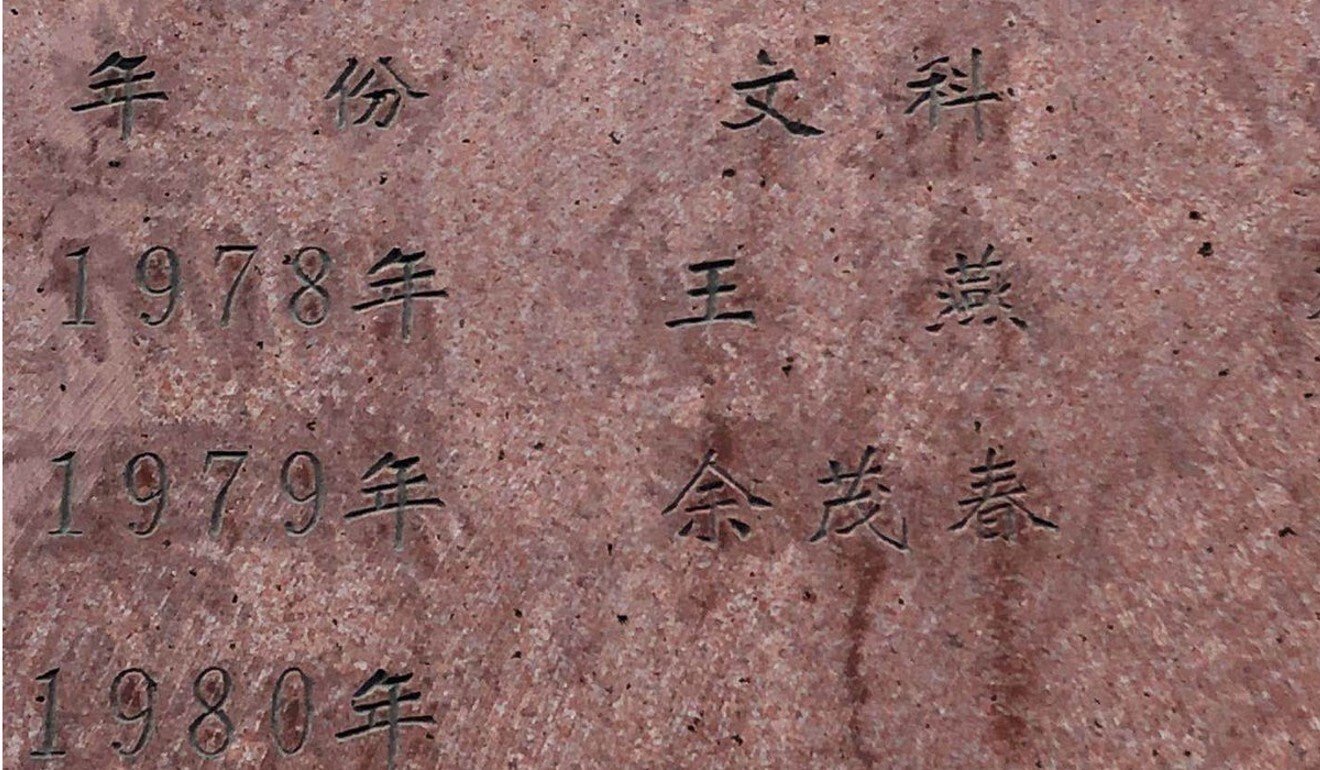 年 份 文 科
1978年 王 燕
1979年 余茂春
1980年